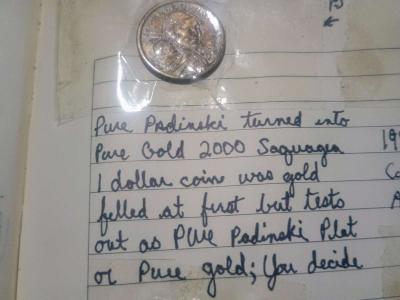 Pure Padinski turned into
Pure Gold 2000 Saquagea
1 dollar coin was gold
felled at first but tests
out as PURE Padinski Plat
or Pure gold; You decide